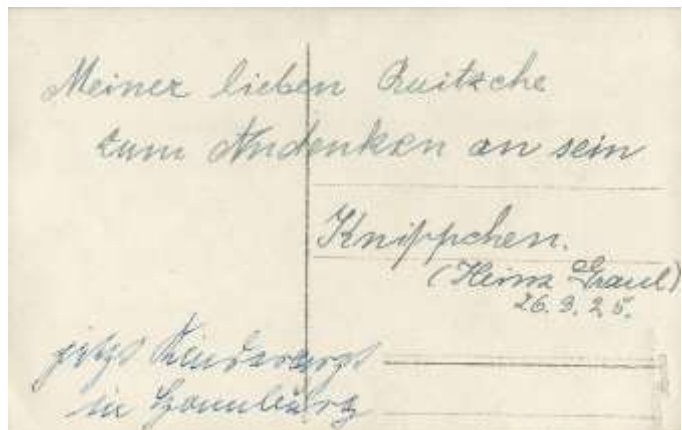 Meiner lieben Quitsche
zum Andenken an sein
Knippchen.
(Heinz Graul)
26.3.25.
jetzt Kinderarzt
in Hamburg